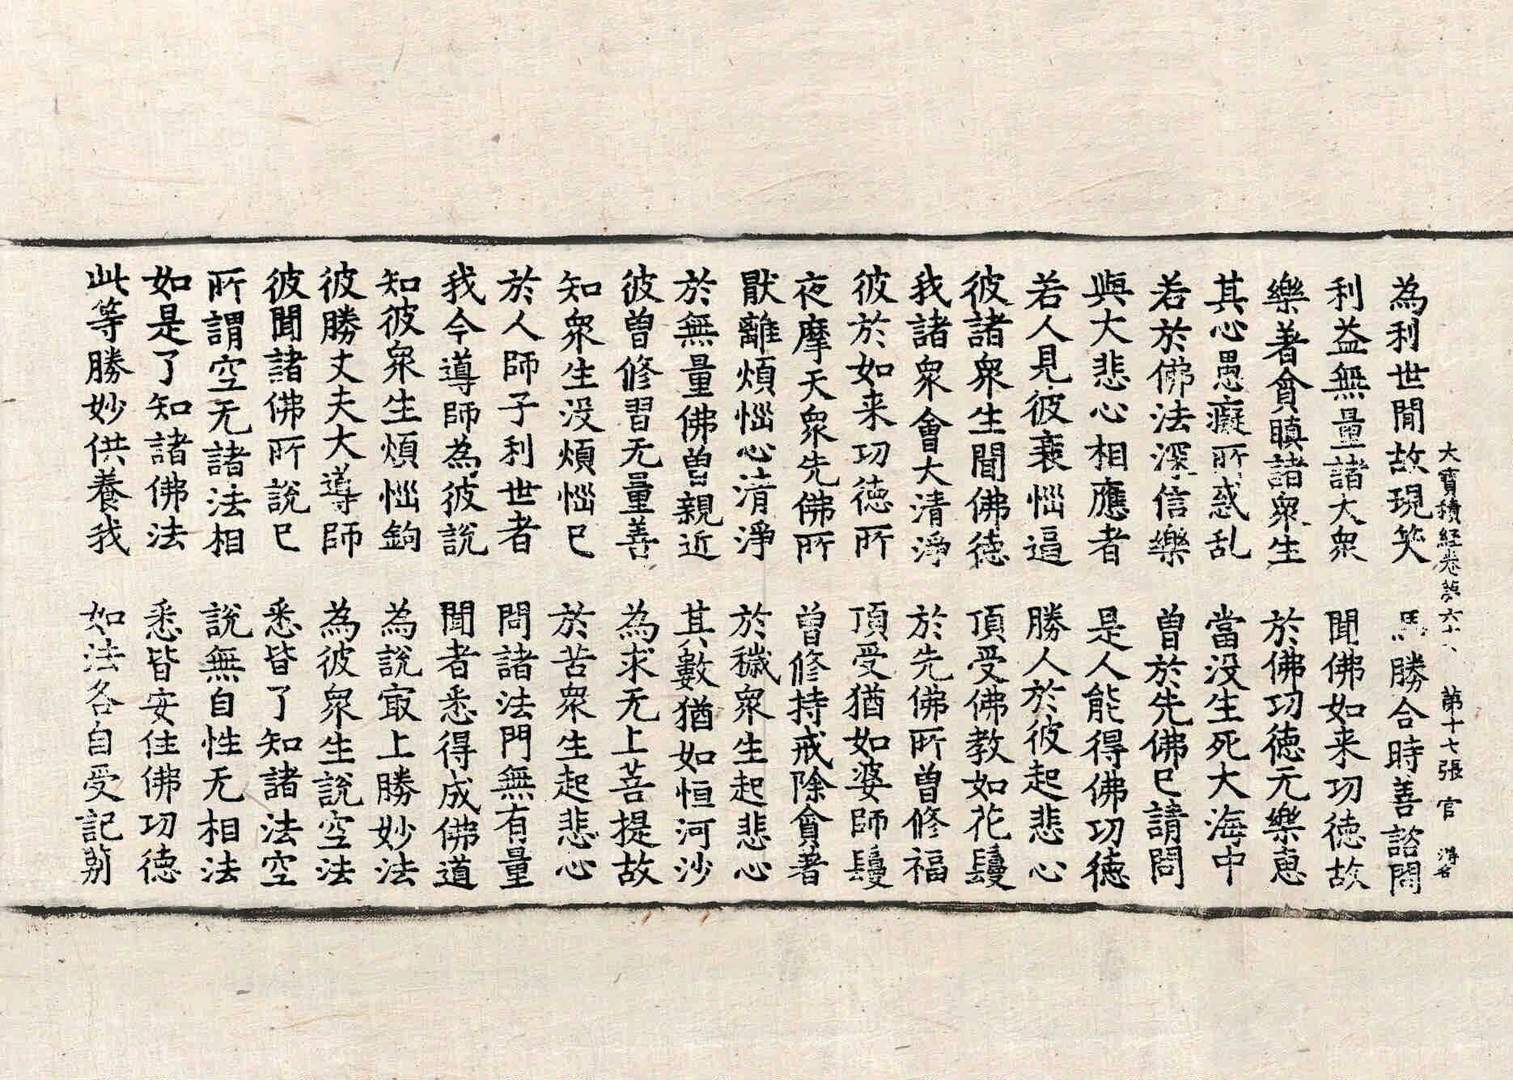 大寶積經卷第六十 第十七張 官
為利世間故現笑 馬勝合時善諮問
利益無量諸大衆 聞佛如来功徳故
樂著貪瞋諸衆生 於佛功徳无樂恵
其心愚癡所惑乱 當没生死大海中
若於佛法深信樂 曽於先佛已請問
與大悲心相應者 是人能得佛功徳
若人見彼衰惱逼 勝人於彼起悲心
彼諸衆生聞佛徳 頂受佛教如花鬘
我諸衆會大清淨 於先佛所曽修福
彼於如来功徳所 頂受猶如婆師鬘
夜摩天衆先佛所 曽修持戒除貪著
猒離煩惱心清淨 於穢衆生起悲心
於無量佛曽親近 其數猶如恒河沙
彼曽修習无量善 為求无上菩提故
知衆生没煩惱已 於苦衆生起悲心
於人師子利世者 問諸法門無有量
我今導師為彼説 聞者悉得成佛道
知彼衆生煩惱鉤 為説㝡上勝妙法
彼勝丈夫大導師 為彼衆生説空法
彼聞諸佛所説已 悉皆了知諸法空
所謂空无諸法相 説無自性无相法
如是了知諸佛法 悉皆安住佛功徳
此等勝妙供養我 如法各自受記莂